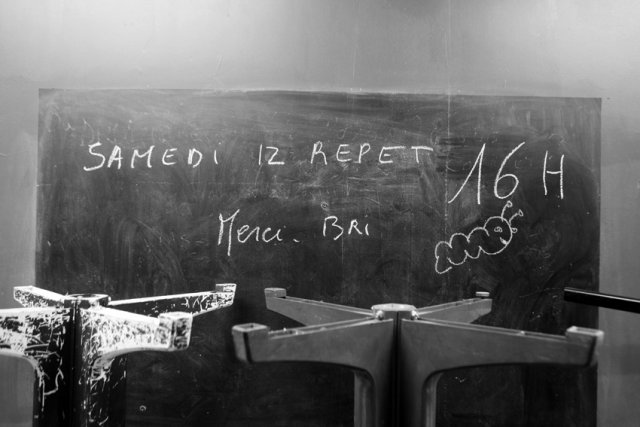 SAMEDI 12 REPET 16 H
Merci. BRi